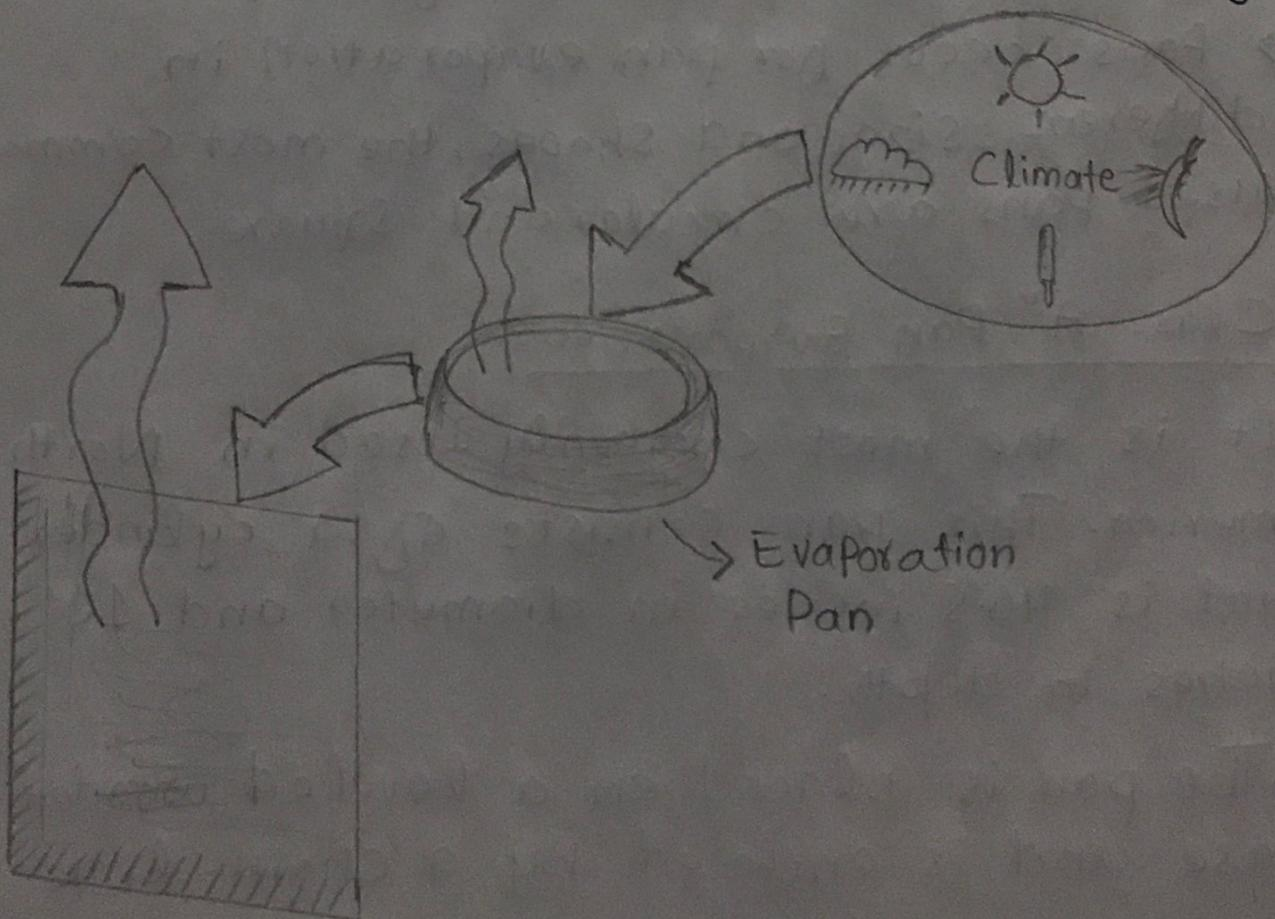 Climate
Evaporation
Pan